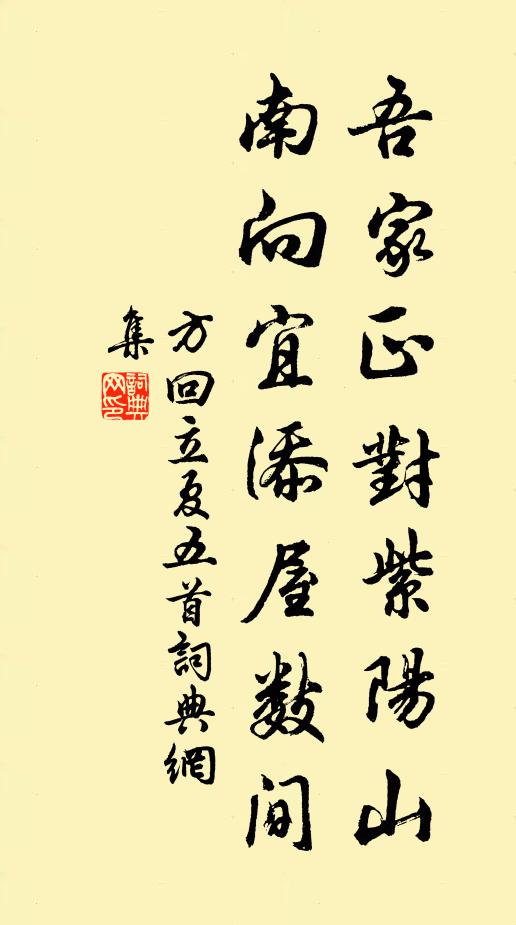 吾家正對紫陽山
南向宜添屋數間
方回立夏五首詞典網
集
詞典網印